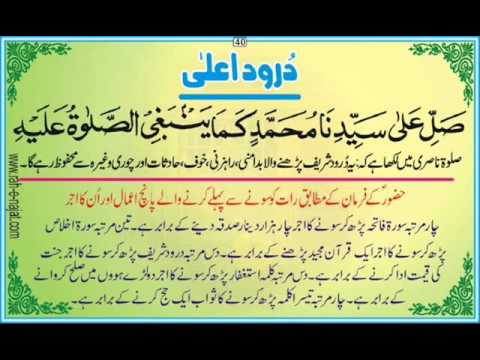 40
درود اعلٰی
صَلِّ عَلٰی سَیِّدِنَا مُحَمَّدٍ کَمَا یَنْبَغِی الصَّلٰوۃُ عَلَیْہِ
صلوۃ ناصری میں لکھا ہے کہ: یہ درود شریف پڑھنے والا بدامنی، راہزنی، خوف، حادثات اور چوری وغیرہ سے محفوظ رہے گا۔
حضورؐ کے فرمان کے مطابق رات کو سونے سے پہلے کرنے والے پانچ اعمال اور اُن کا اجر
چار مرتبہ سورۃ فاتحہ پڑھ کر سونے کا اجر چار ہزار دینار صدقہ دینے کے برابر ہے۔ تین مرتبہ سورۃ اخلاص
پڑھ کر سونے کا اجر ایک قرآن مجید پڑھنے کے برابر ہے۔ دس مرتبہ درود شریف پڑھ کر سونے کا اجر جنت
کی قیمت ادا کرنے کے برابر ہے۔ دس مرتبہ کلمہ استغفار پڑھ کر سونے کا اجر دو لڑے ہووں میں صلح کروانے
کے برابر ہے۔ چار مرتبہ تیسرا کلمہ پڑھ کر سونے کا ثواب ایک حج کرنے کے برابر ہے۔